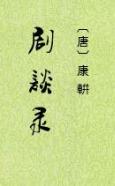 剧谈录
〔唐〕康軿